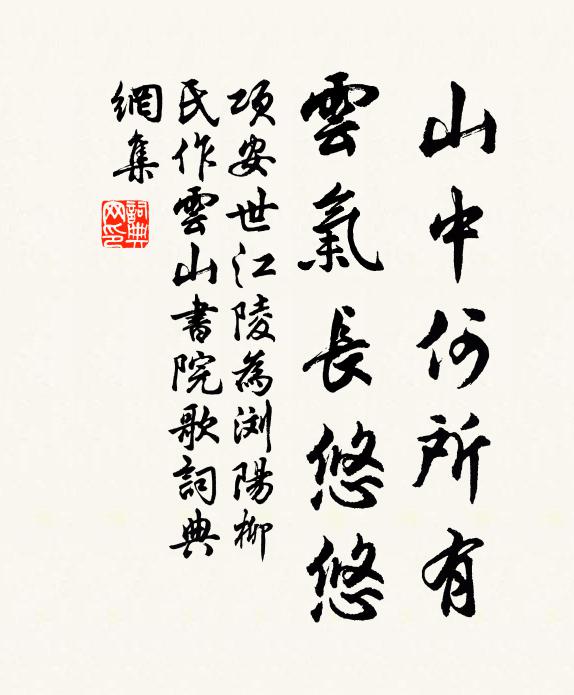 山中何所有
雲氣長悠悠
項安世江陵為瀏陽柳
氏作雲山書院歌詞典
網集
詞典網印